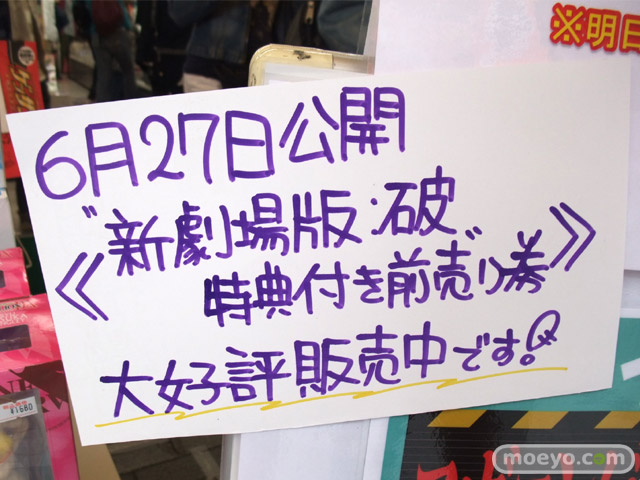 ※明日
6月27日公開
"新劇場版:破"
《特典付き前売り券》
大好評販売中です!
moeyo.com